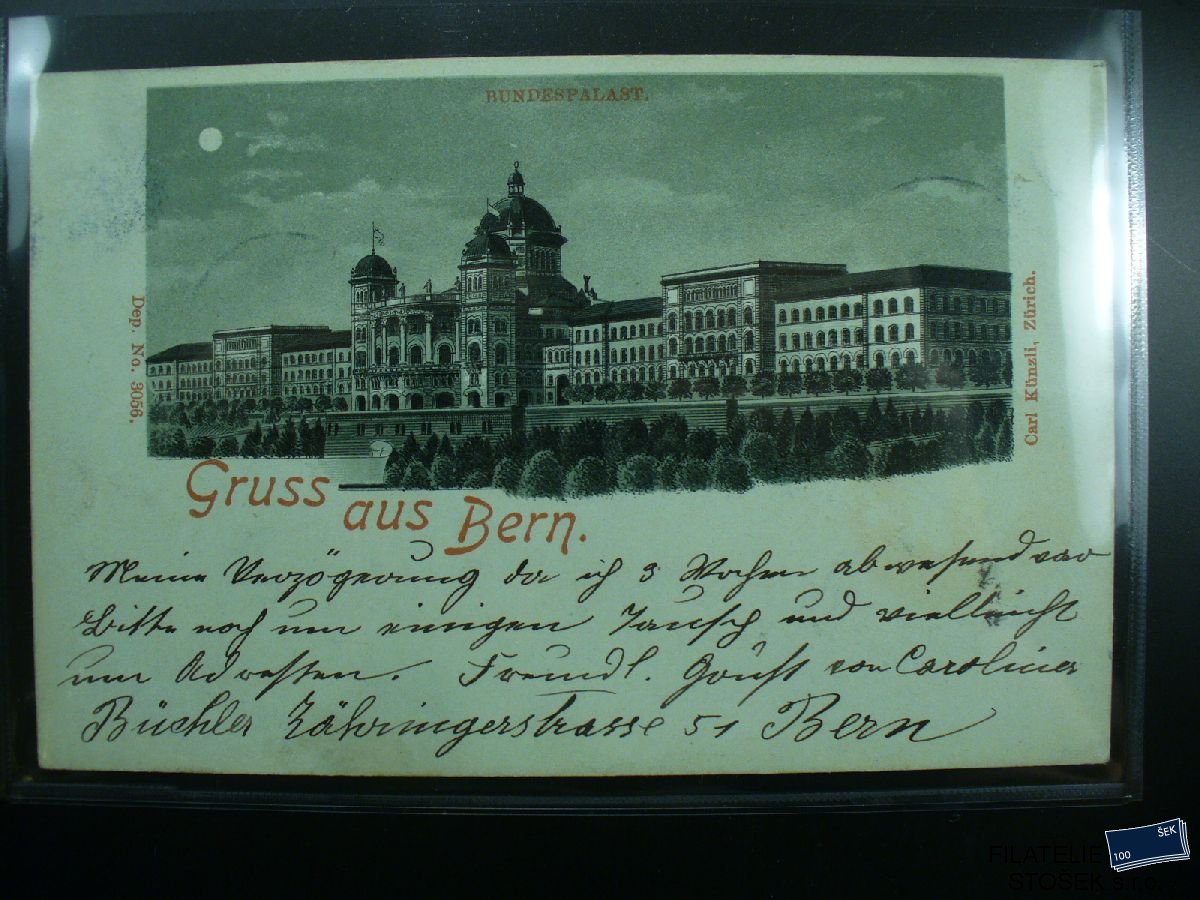 BUNDESPALAST.
Dep. No. 3056.
Carl Künzli, Zürich.
Gruss aus Bern.
Meine Verzögerung da ich 3 Wochen abwesend war
Bitte noch um einigen Tausch und vielleicht
um Adressen. Freundl. Grüsst von Carolina
Büchler Zähringerstrasse 51 Bern
100 ŠEK
FILATELIE
STOSEK s.r.o.